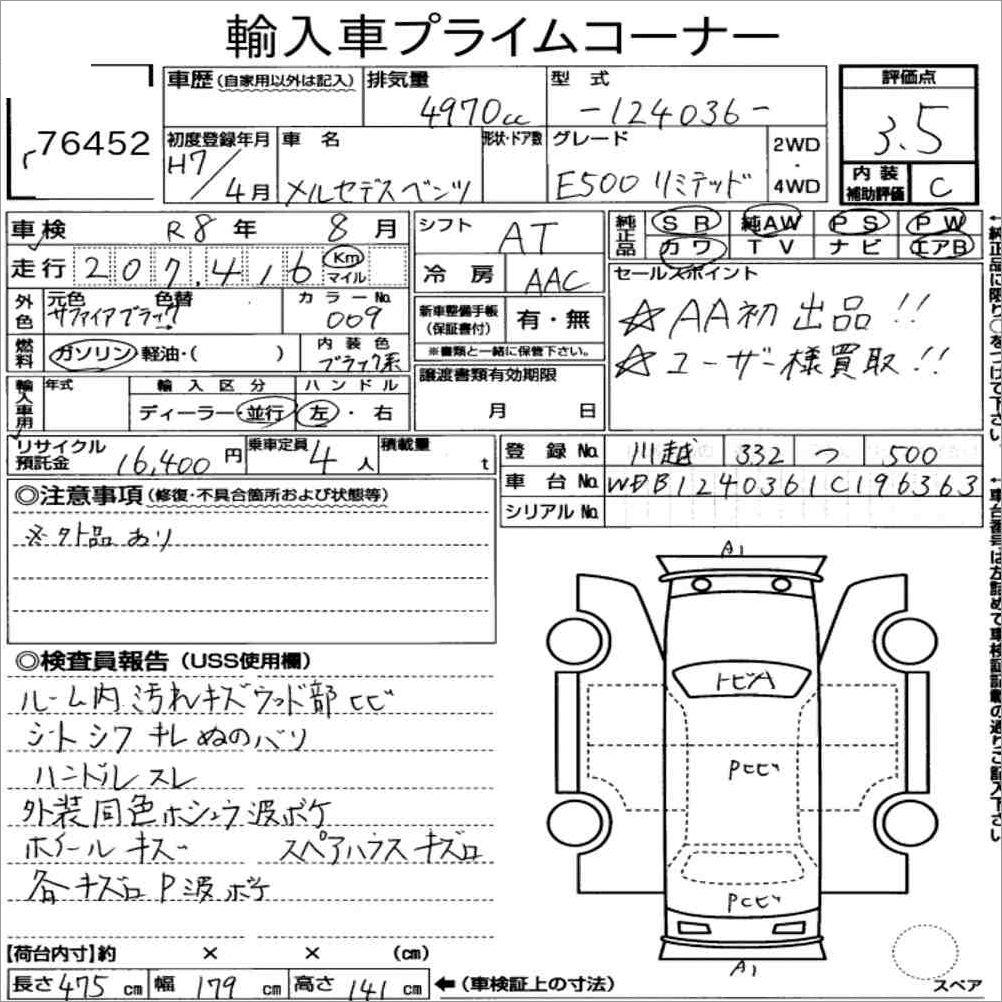 輸入車プライムコーナー
76452
車歴(自家用以外は記入)
排気量
4970cc
型式
-124036-
評価点
3.5
初度登録年月
H7/4月
車名
メルセデスベンツ
形状・ドア数
グレード
E500 リミテッド
2WD
・
4WD
内装
補助評価
C
車検 R8年 8月
シフト AT
純正品
SR 純AW PS PW
カワ TV ナビ エアB
走行 207,416 Km
マイル
冷房 AAC
セールスポイント
☆AA初出品!!
☆ユーザー様買取!!
外色
元色 色替
サファイアブラック
カラーNo.
009
新車整備手帳
(保証書付)
有・無
※書類と一緒に保管下さい。
燃料
ガソリン・軽油・( )
内装色
ブラック系
譲渡書類有効期限
月 日
輸入車用
年式
輸入区分
ディーラー・並行
ハンドル
左・右
リサイクル
預託金
16,400円
乗車定員 4人
積載量 t
登録No. 川越 332 つ 500
車台No. WDB1240361C196363
シリアルNo.
◎注意事項(修復・不具合箇所および状態等)
※外品あり
◎検査員報告(USS使用欄)
ルーム内 汚れキズ ウッド部ヒビ
シートシワ キレ ぬのバリ
ハンドルスレ
外装同色ホシュウ波ボケ
ホイールキズ スペアハウスキズロ
各キズロ P波ボケ
A1
トビA
Pヒビ
Pヒビ
A1
スペア
【荷台内寸】約 × × (cm)
長さ475cm 幅179cm 高さ141cm ←(車検証上の寸法)
↑純正品に限り○をつけて下さい。
↑車台番号は左詰めで車検証記載の通りご記入下さい